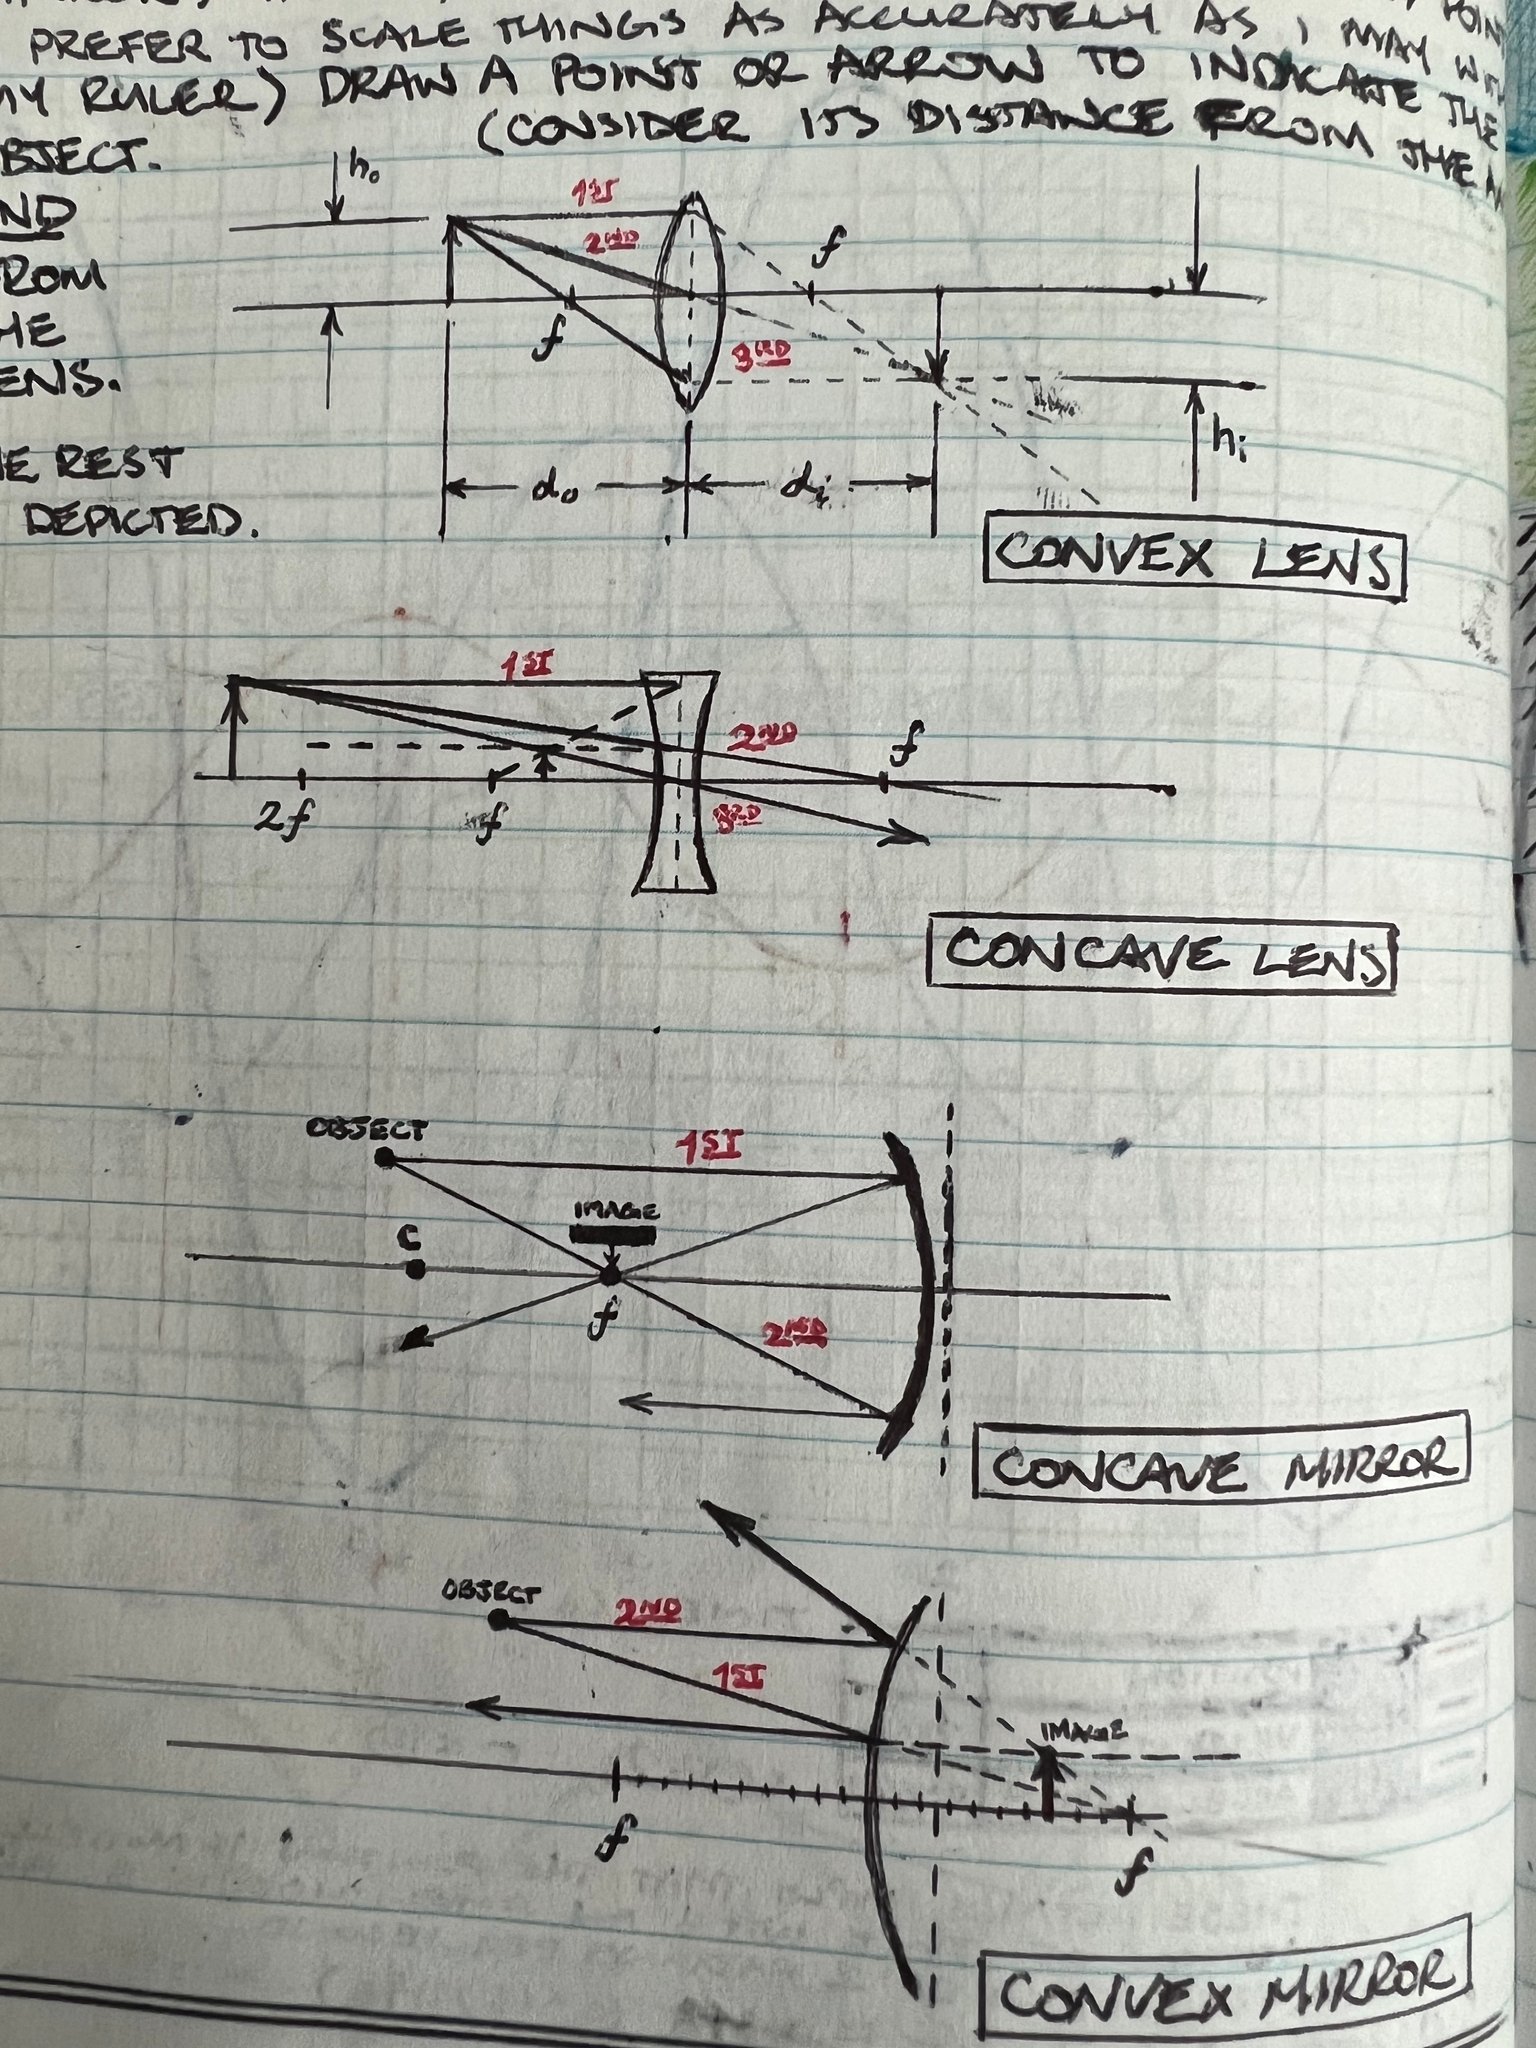 PREFER TO SCALE THINGS AS ACCURATELY AS I MAY WITH
MY RULER) DRAW A POINT OR ARROW TO INDICATE THE
OBJECT. (CONSIDER ITS DISTANCE FROM THE
ho
1ST
2ND
f
ROM
HE
ENS.
f
3RD
hi
E REST
do
di
DEPICTED.
CONVEX LENS
1ST
2ND
f
2f
f
3RD
CONCAVE LENS
OBJECT
1ST
IMAGE
C
f
2ND
CONCAVE MIRROR
OBJECT
2ND
1ST
IMAGE
f
f
CONVEX MIRROR